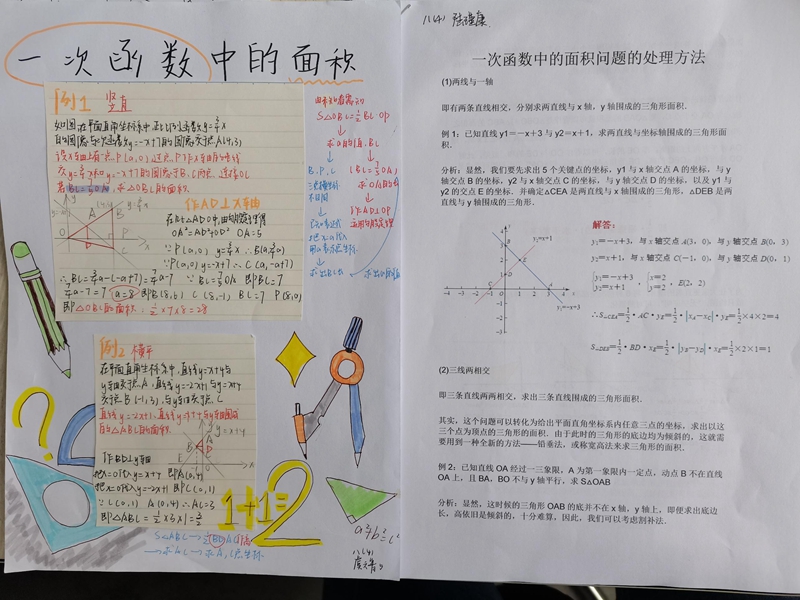 一次函数中的面积
例1 竖直
如图,在平面直角坐标系中,正比例函数y=3/4x
的图象与一次函数y=-x+7的图象交于点A(4,3)
设x轴上有一点P(a,0),过点P作x轴的垂线
交y=3/4x和y=-x+7的图象于B、C两点,连接OC
若BC=7/5OA,求△OBC的面积.
作AD⊥x轴
在Rt△ADO中,由勾股定理得
OA²=AD²+OD² OA=5
∵P(a,0) y=3/4x ∴B(a,3/4a)
∵P(a,0) y=-x+7 ∴C(a,-a+7)
∴BC=3/4a-(-a+7)=7/4a-7 ∵BC=7/5OA 即BC=7
7/4a-7=7 a=8 即B(8,6) C(8,-1) BC=7 P(8,0)
即△OBC的面积:1/2×7×8=28
S△OBC=1/2BC·OP
例2 横平
在平面直角坐标系中,直线y=x+4与
y轴交于点A,直线y=-2x+1与y=x+4
交于点B(-1,3),与y轴交于点C
直线y=-2x+1,直线y=x+4与y轴围成
的△ABC的面积
y=x+4
作BD⊥y轴
把x=0代入y=x+4 即A(0,4)
把x=0代入y=-2x+1 即C(0,1)
∵C(0,1) A(0,4) ∴AC=3
即△ABC=1/2×3×1=3/2
1+1=2
a²+b²=c²
八(4)
八(4) 张瑾康
一次函数中的面积问题的处理方法
(1)两线与一轴
即有两条直线相交,分别求两直线与 x 轴,y 轴围成的三角形面积.
例 1:已知直线 y1=-x+3 与 y2=x+1,求两直线与坐标轴围成的三角形面
积.
分析:显然,我们要先求出 5 个关键点的坐标,y1 与 x 轴交点 A 的坐标,y1 与 y
轴交点 B 的坐标,y2 与 x 轴交点 C 的坐标,与 y 轴交点 D 的坐标,以及 y1 与
y2 的交点 E 的坐标.并确定△CEA 是两直线与 x 轴围成的三角形,△DEB 是两
直线与 y 轴围成的三角形.
解答:
y₁=-x+3,与 x 轴交点 A(3,0),与 y 轴交点 B(0,3)
y₂=x+1,与 x 轴交点 C(-1,0),与 y 轴交点 D(0,1)
{y₁=-x+3 {x=2
{y₂=x+1 , {y=2 , E(2,2)
∴S△CEA=1/2·AC·yE=1/2·|xA-xC|·yE=1/2×4×2=4
S△DEB=1/2·BD·xE=1/2·|yB-yD|·xE=1/2×2×1=1
y=x+1
y=-x+3
(2)三线两相交
即三条直线两两相交,求出三条直线围成的三角形面积.
其实,这个问题可以转化为给出平面直角坐标系内任意三点的坐标,求出以这
三个点为顶点的三角形的面积.由于此时的三角形的底边均为倾斜的,这就需
要用到一种全新的方法——铅垂法,或称宽高法来求三角形的面积.
例 2:已知直线 OA 经过一三象限,A 为第一象限内一定点,动点 B 不在直线
OA 上,且 BA,BO 不与 y 轴平行,求 S△OAB
分析:显然,这时候的三角形 OAB 的底并不在 x 轴,y 轴上,即便求出底边
长,高依旧是倾斜的,十分难算,因此,我们可以考虑割补法.